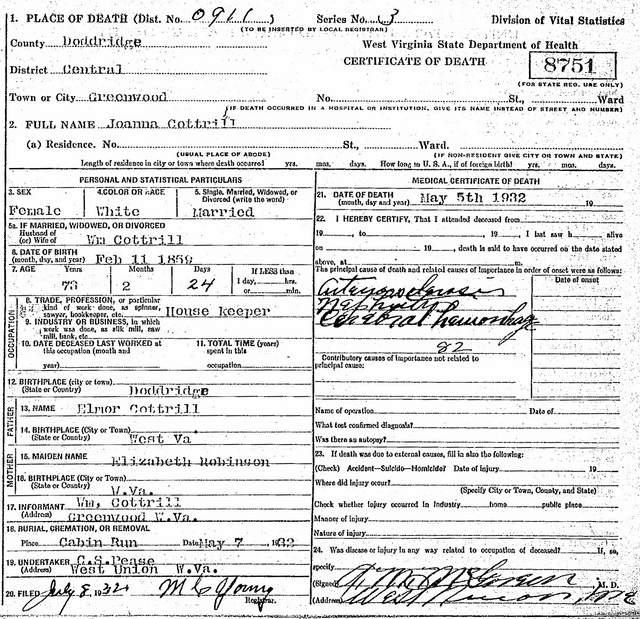 1. PLACE OF DEATH (Dist. No. 0911) Series No. 3 Division of Vital Statistics
(TO BE INSERTED BY LOCAL REGISTRAR)
County Doddridge West Virginia State Department of Health
CERTIFICATE OF DEATH 8751
District Central
(FOR STATE REG. USE ONLY)
Town or City Greenwood No. St., Ward
(IF DEATH OCCURRED IN A HOSPITAL OR INSTITUTION, GIVE ITS NAME INSTEAD OF STREET AND NUMBER)
2. FULL NAME Joanna Cottrill
(a) Residence. No. St., Ward.
(USUAL PLACE OF ABODE) (IF NON-RESIDENT GIVE CITY OR TOWN AND STATE)
Length of residence in city or town where death occurred yrs. mos. days. How long in U. S. A., if of foreign birth? yrs. mos. days.
PERSONAL AND STATISTICAL PARTICULARS
3. SEX 4. COLOR OR RACE 5. Single, Married, Widowed, or
Divorced (write the word)
Female White Married
5a. IF MARRIED, WIDOWED, OR DIVORCED
Husband of
(or) Wife of Wm Cottrill
6. DATE OF BIRTH
(month, day, and year) Feb 11 1859
7. AGE Years Months Days If LESS than
1 day, hrs.
73 2 24 or min.
OCCUPATION
8. TRADE, PROFESSION, or particular
kind of work done, as spinner,
sawyer, bookkeeper, etc. House keeper
9. INDUSTRY OR BUSINESS, in which
work was done, as silk mill, saw
mill, bank, etc.
10. DATE DECEASED LAST WORKED at
this occupation (month and
year)
11. TOTAL TIME (years)
spent in this
occupation
12. BIRTHPLACE (city or town)
(State or Country) Doddridge
FATHER
13. NAME Elmor Cottrill
14. BIRTHPLACE (City or Town)
(State or Country) West Va
MOTHER
15. MAIDEN NAME Elizabeth Robinson
16. BIRTHPLACE (City or Town)
(State or Country) W.Va.
17. INFORMANT Wm, Cottrill
(Address) Greenwood W.Va.
18. BURIAL, CREMATION, OR REMOVAL
Place Cabin Run Date May 7 1932
19. UNDERTAKER C.S.Pease
(Address) West Union W.Va.
20. FILED July 8, 1932 M C Young
Registrar.
MEDICAL CERTIFICATE OF DEATH
21. DATE OF DEATH
(month, day, and year) May 5th 1932 19
22. I HEREBY CERTIFY, That I attended deceased from
19 , to 19 , I last saw h alive
on 19 , death is said to have occurred on the date stated
above, at m.
The principal cause of death and related causes of importance in order of onset were as follows:
Date of onset
Cerebral hemorrhage
82
Contributory causes of importance not related to
principal cause:
Name of operation Date of
What test confirmed diagnosis?
Was there an autopsy?
23. If death was due to external causes, fill in also the following:
(Check) Accident—Suicide—Homicide? Date of injury 19
Where did injury occur?
(Specify City or Town, County, and State)
Check whether injury occurred in Industry home public place
Manner of injury
Nature of injury
24. Was disease or injury in any way related to occupation of deceased? If, so,
specify
(Signed) M. D.
(Address) West Union,